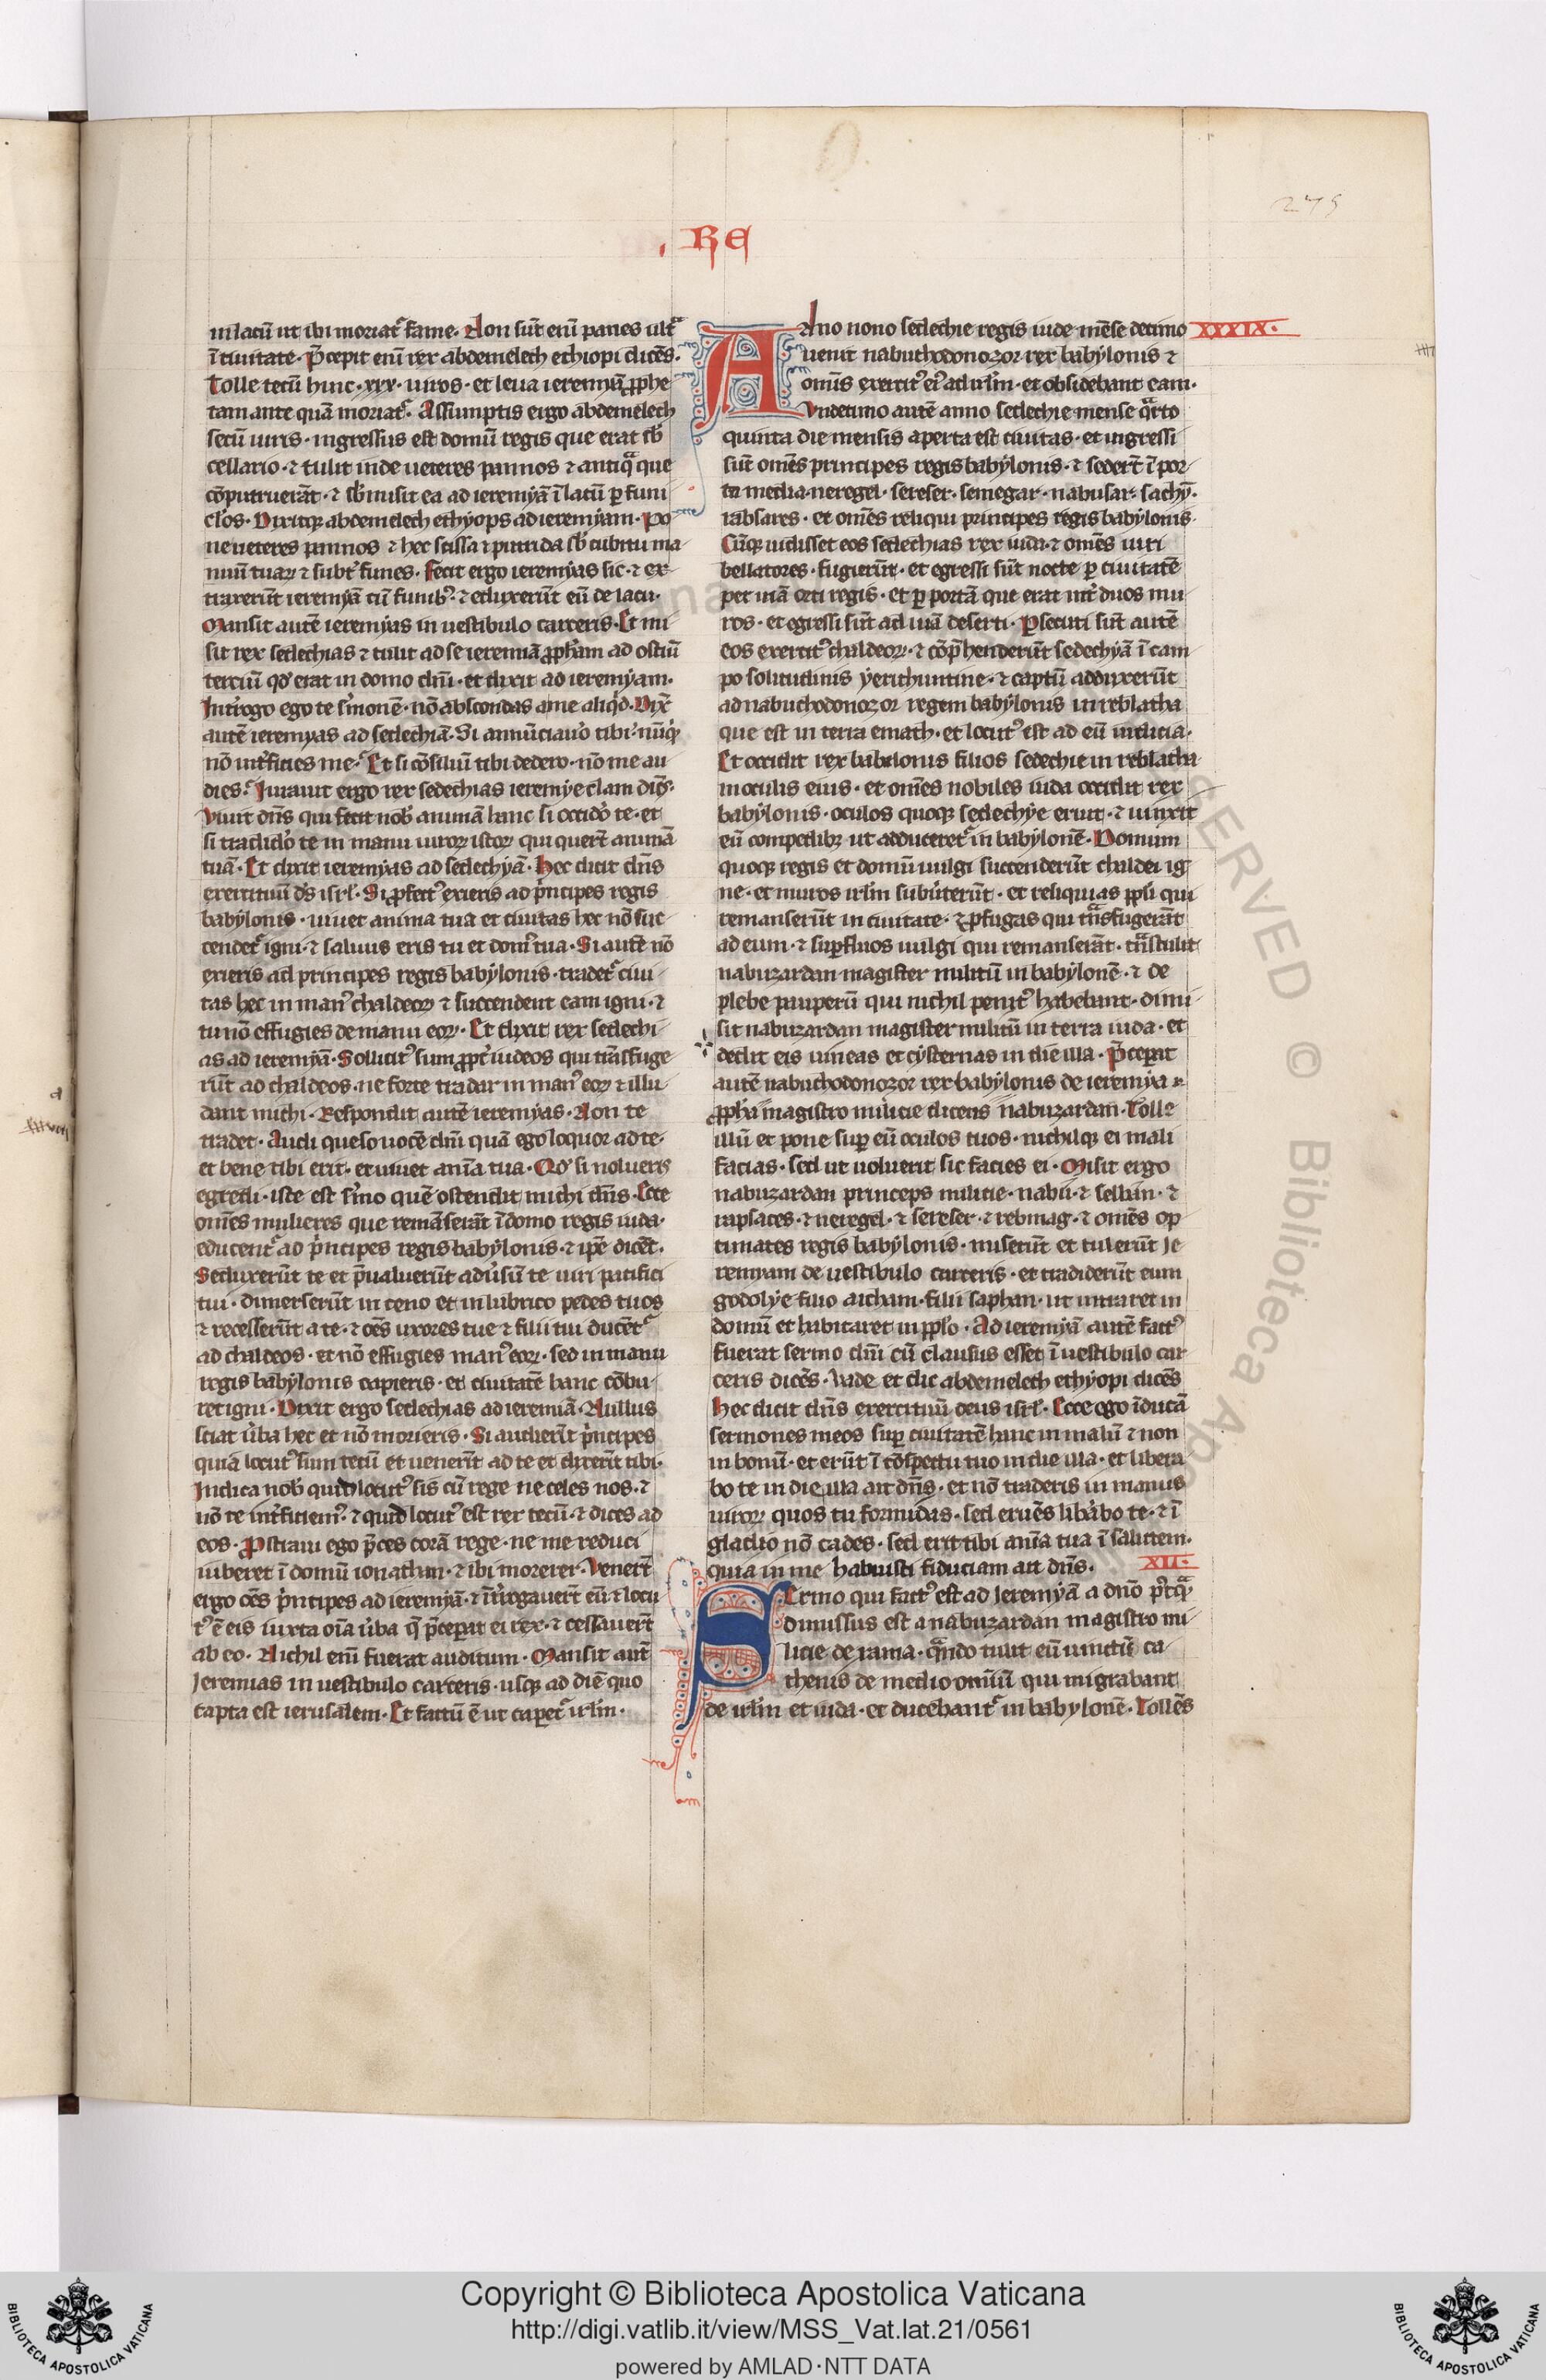 275
RE
in lacũ ut ibi moriat᷑ fame. Non sũt enĩ panes ultͣ 
ĩ ciuitate. P̃cepit enĩ rex abdemelech ethiopi dicẽs.
Tolle tecũ hinc .xxx. uiros. et leua ieremyã ꝓphe
tam ante quã moriat᷑. Assumptis ergo abdemelech
secũ uiris. ingressus est domũ regis que erat sb̾
cellario. ⁊ tulit inde ueteres pannos ⁊ antiqͣ que
cõputruerãt. ⁊ sb̾misit ea ad ieremyã ĩ lacũ ꝑ funi
cl̾os. Dixitqꝫ abdemelech ethyops ad ieremyam. Po
ne ueteres pannos ⁊ hec scissa ⁊ putrida sb̾ cubitu ma
nuũ tuaꝝ ⁊ subt᷑ funes. Fecit ergo ieremyas sic. ⁊ ex
traxerũt ieremyã cũ funibꝰ. ⁊ eduxerũt eũ de lacu.
Mansit autẽ ieremyas in uestibulo carceris. Et mi
sit rex sedechias ⁊ tulit ad se ieremiã ꝓph̃am ad ostiũ
terciũ qđ erat in domo dñi. et dixit ad ieremyam.
Int̾rogo ego te s̾monẽ. nõ abscondas a me aliqͥd. Dix̃
autẽ ieremyas ad sedechiã. Si annũciauo᷑ tibi. nũqͥd
nõ int̾ficies me. Et si cõsiliũ tibi dedero. nõ me au
dies. Iurauit ergo rex sedechias ieremye clam dic̃s.
Viuit dñs qui fecit nob̾ animã hanc si occido᷑ te. et
si tradido᷑ te in manu uiroꝝ istoꝝ qui quert̃ animã
tuã. Et dixit ieremyas ad sedechyã. Hec dicit dñs
exercituũ dꝰs isrl̾. Si ꝓfectꝰ exieris ad pͥncipes regis
babylonis. uiuet anima tua et ciuitas hec nõ suc
cendet᷑ igni. ⁊ saluus eris tu et domꝰ tua. Si autẽ nõ
exieris ad principes regis babylonis. tradet᷑ ciui
tas hec in manꝰ chaldeoꝝ ⁊ succendent eam igni. ⁊
tu nõ effugies de manu eoꝝ. Et dixit rex sedechi
as ad ieremyã. Sollicitꝰ sum ꝓpt᷑ iudeos qui trãsfuge
rũt ad chaldeos. ne forte tradar in manꝰ eoꝝ ⁊ illu
dant michi. Respondit autẽ ieremyas. Non te
tradet. Audi queso uocẽ dñi quã ego loquor ad te.
et bene tibi erit. et uiuet anĩa tua. Qđ si nolueris
egredi. iste est s̾mo quẽ ostendit michi dñs. Ecce
omẽs mulieres que remãserãt ĩ domo regis iuda.
educent᷑ ad pͥncipes regis babylonis. ⁊ ip̃e dicẽt.
Seduxerũt te et p̃ualuerũt adu̾sũ te uiri pacifici
tui. dimerserũt in ceno et in lubrico pedes tuos
⁊ recesserũt a te. ⁊ oẽs uxores tue ⁊ filii tui ducẽt᷑
ad chaldeos. et nõ effugies manꝰ eoꝝ. sed in manu
regis babylonis capieris. et ciuitatẽ hanc cõbu
ret igni. Dixit ergo sedechias ad ieremiã. Nullus
sciat u̾ba hec et nõ morieris. Si audierĩt pͥncipes
quia locutꝰ sum tecũ et uenerĩt ad te et dixerĩt tibi.
Indica nob̾ quid locutꝰ sis cũ rege ne celes nos. ⁊
nõ te int̾ficiemꝰ. ⁊ quid locutꝰ est rex tecũ. ⁊ dices ad
eos. Pstraui ego p̃ces corã rege. ne me reduci
iuberet ĩ domũ ionathan. ⁊ ibi morerer. Venert̃
ergo oẽs pͥncipes ad ieremyã. ⁊ ĩt̾rogauert̃ eũ ⁊ locu
tꝰ ẽ eis iuxta oĩa u̾ba q̃ p̃cepat ei rex. ⁊ cessauert̃
ab eo. Nichil enĩ fuerat auditum. Mansit aut̃
Ieremias in uestibulo carceris. usqꝫ ad diẽ quo
capta est ierusalem. Et factũ ẽ ut caperet᷑ irl̃m.
XXXIX.
Anno nono sedechie regis iude mẽse decimo
uenit nabuchodonozor rex babylonis ⁊
omĩs exercitꝰ eiꝰ ad irl̃m. et obsidebant eam.
Vndecimo autẽ anno sedechie mense qͣrto
quinta die mensis aperta est ciuitas. et ingressi
sũt omẽs principes regis babylonis. ⁊ sedert̃ ĩ por
ta media. neregel. sereser. semegar. nabusar. sachỹ.
rabsares. et omẽs reliqui principes regis babylonis.
Cũqꝫ uidisset eos sedechias rex iuda. ⁊ omẽs uiri
bellatores. fugerũt. et egressi sũt nocte ꝑ ciuitatẽ
per uiã orti regis. et ꝑ portã que erat int᷑ duos mu
ros. et egressi sũt ad uiã deserti. Ꝑsecuti sũt autẽ
eos exercitꝰ chaldeoꝝ. ⁊ cõp̃henderũt sedechyã ĩ cam
po solitudinis yerichuntine. ⁊ captũ adduxerũt
ad nabuchodonozor regem babylonis in reblatha
que est in terra emath. et locutꝰ est ad eũ iudicia.
Et occidit rex babilonis filios sedechie in reblatha
in oculis eius. et omẽs nobiles iuda occidit rex
babylonis. oculos quoqꝫ sedechye eruit. ⁊ uinxit
eũ compedibꝫ ut adduceret᷑ in babylonẽ. Domum
quoqꝫ regis et domũ uulgi succenderũt chaldei ig
ne. et muros irl̃m subu̾terũt. et reliquias ppl̾i qui
remanserũt in ciuitate. ⁊ ꝓfugas qui tͣnsfugerãt
ad eum. ⁊ suꝑfluos uulgi qui remanserãt. tͣnstulit
nabuzardan magister militũ in babylonẽ. ⁊ de
plebe pauperũ qui nichil penitꝰ habebant. dimi
sit nabuzardan magister militũ in terra iuda. et
dedit eis uineas et cysternas in die illa. P̃ceperat
autẽ nabuchodonozor rex babylonis de ieremya
ꝓph̃a magistro milicie dicens nabuzardan. Tolle
illũ et pone suꝑ eũ oculos tuos. nichilqꝫ ei mali
facias. sed ut uoluerit sic facies ei. Misit ergo
nabuzardan princeps milicie. nabu. ⁊ sesban. ⁊
rapsaces. ⁊ neregel. ⁊ sereser. ⁊ rebmag. ⁊ omẽs op
timates regis babylonis. miserũt et tulerũt Ie
remyam de uestibulo carceris. et tradiderũt eum
godolye filio aicham. filii saphan. ut intraret in
domũ et habitaret in ppl̾o. Ad ieremyã autẽ factꝰ
fuerat sermo dñi cũ clausus esset ĩ uestibulo car
ceris dicẽs. Vade et dic abdemelech ethyopi dicẽs
Hec dicit dñs exercituũ deus isrl̾. Ecce ego ĩducã
sermones meos suꝑ ciuitatẽ hanc in malũ ⁊ non
in bonũ. et erũt ĩ cõspectu tuo in die illa. et libera
bo te in die illa ait dñs. et nõ traderis in manus
uiroꝝ quos tu formidas. sed eruẽs libãbo te. ⁊ ĩ
gladio nõ cades. sed erit tibi anĩa tua ĩ salutem.
quia in me habuisti fiduciam ait dñs.
XLI.
Sermo qui factꝰ est ad Ieremyã a dño pꝰtqͣ
dimissus est a nabuzardan magistro mi
licie de rama. qͣndo tulit eũ uinctũ ca
thenis de medio omĩũ qui migrabant
de irl̃m et iuda. et ducebant᷑ in babylonẽ. Tollẽs
Copyright © Biblioteca Apostolica Vaticana
http://digi.vatlib.it/view/MSS_Vat.lat.21/0561
powered by AMLAD·NTT DATA
BIBLIOTECA APOSTOLICA VATICANA
BIBLIOTECA APOSTOLICA VATICANA